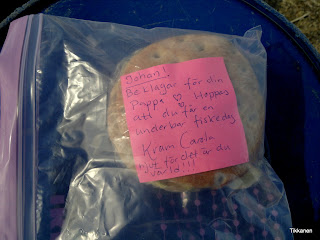 Johan!
Beklagar för din
Pappa ♡ Hoppas
att du får en
underbar fiskedag
Kram Carola
njut för det är du
Tikkanen